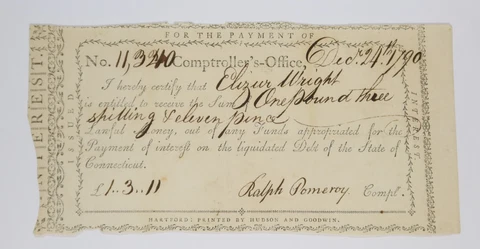 FOR THE PAYMENT OF
INTEREST.
ISSUED
INTEREST.
No. 11,320 Comptroller's-Office, Decr. 24th 1790
I hereby certify that Elizur Wright
is entitled to receive the Sum One pound three
shilling & eleven pence
Lawful Money, out of any Funds appropriated for the
Payment of interest on the liquidated Debt of the State of
Connecticut.
£1..3..11 Ralph Pomeroy Compt.
HARTFORD: PRINTED BY HUDSON AND GOODWIN.